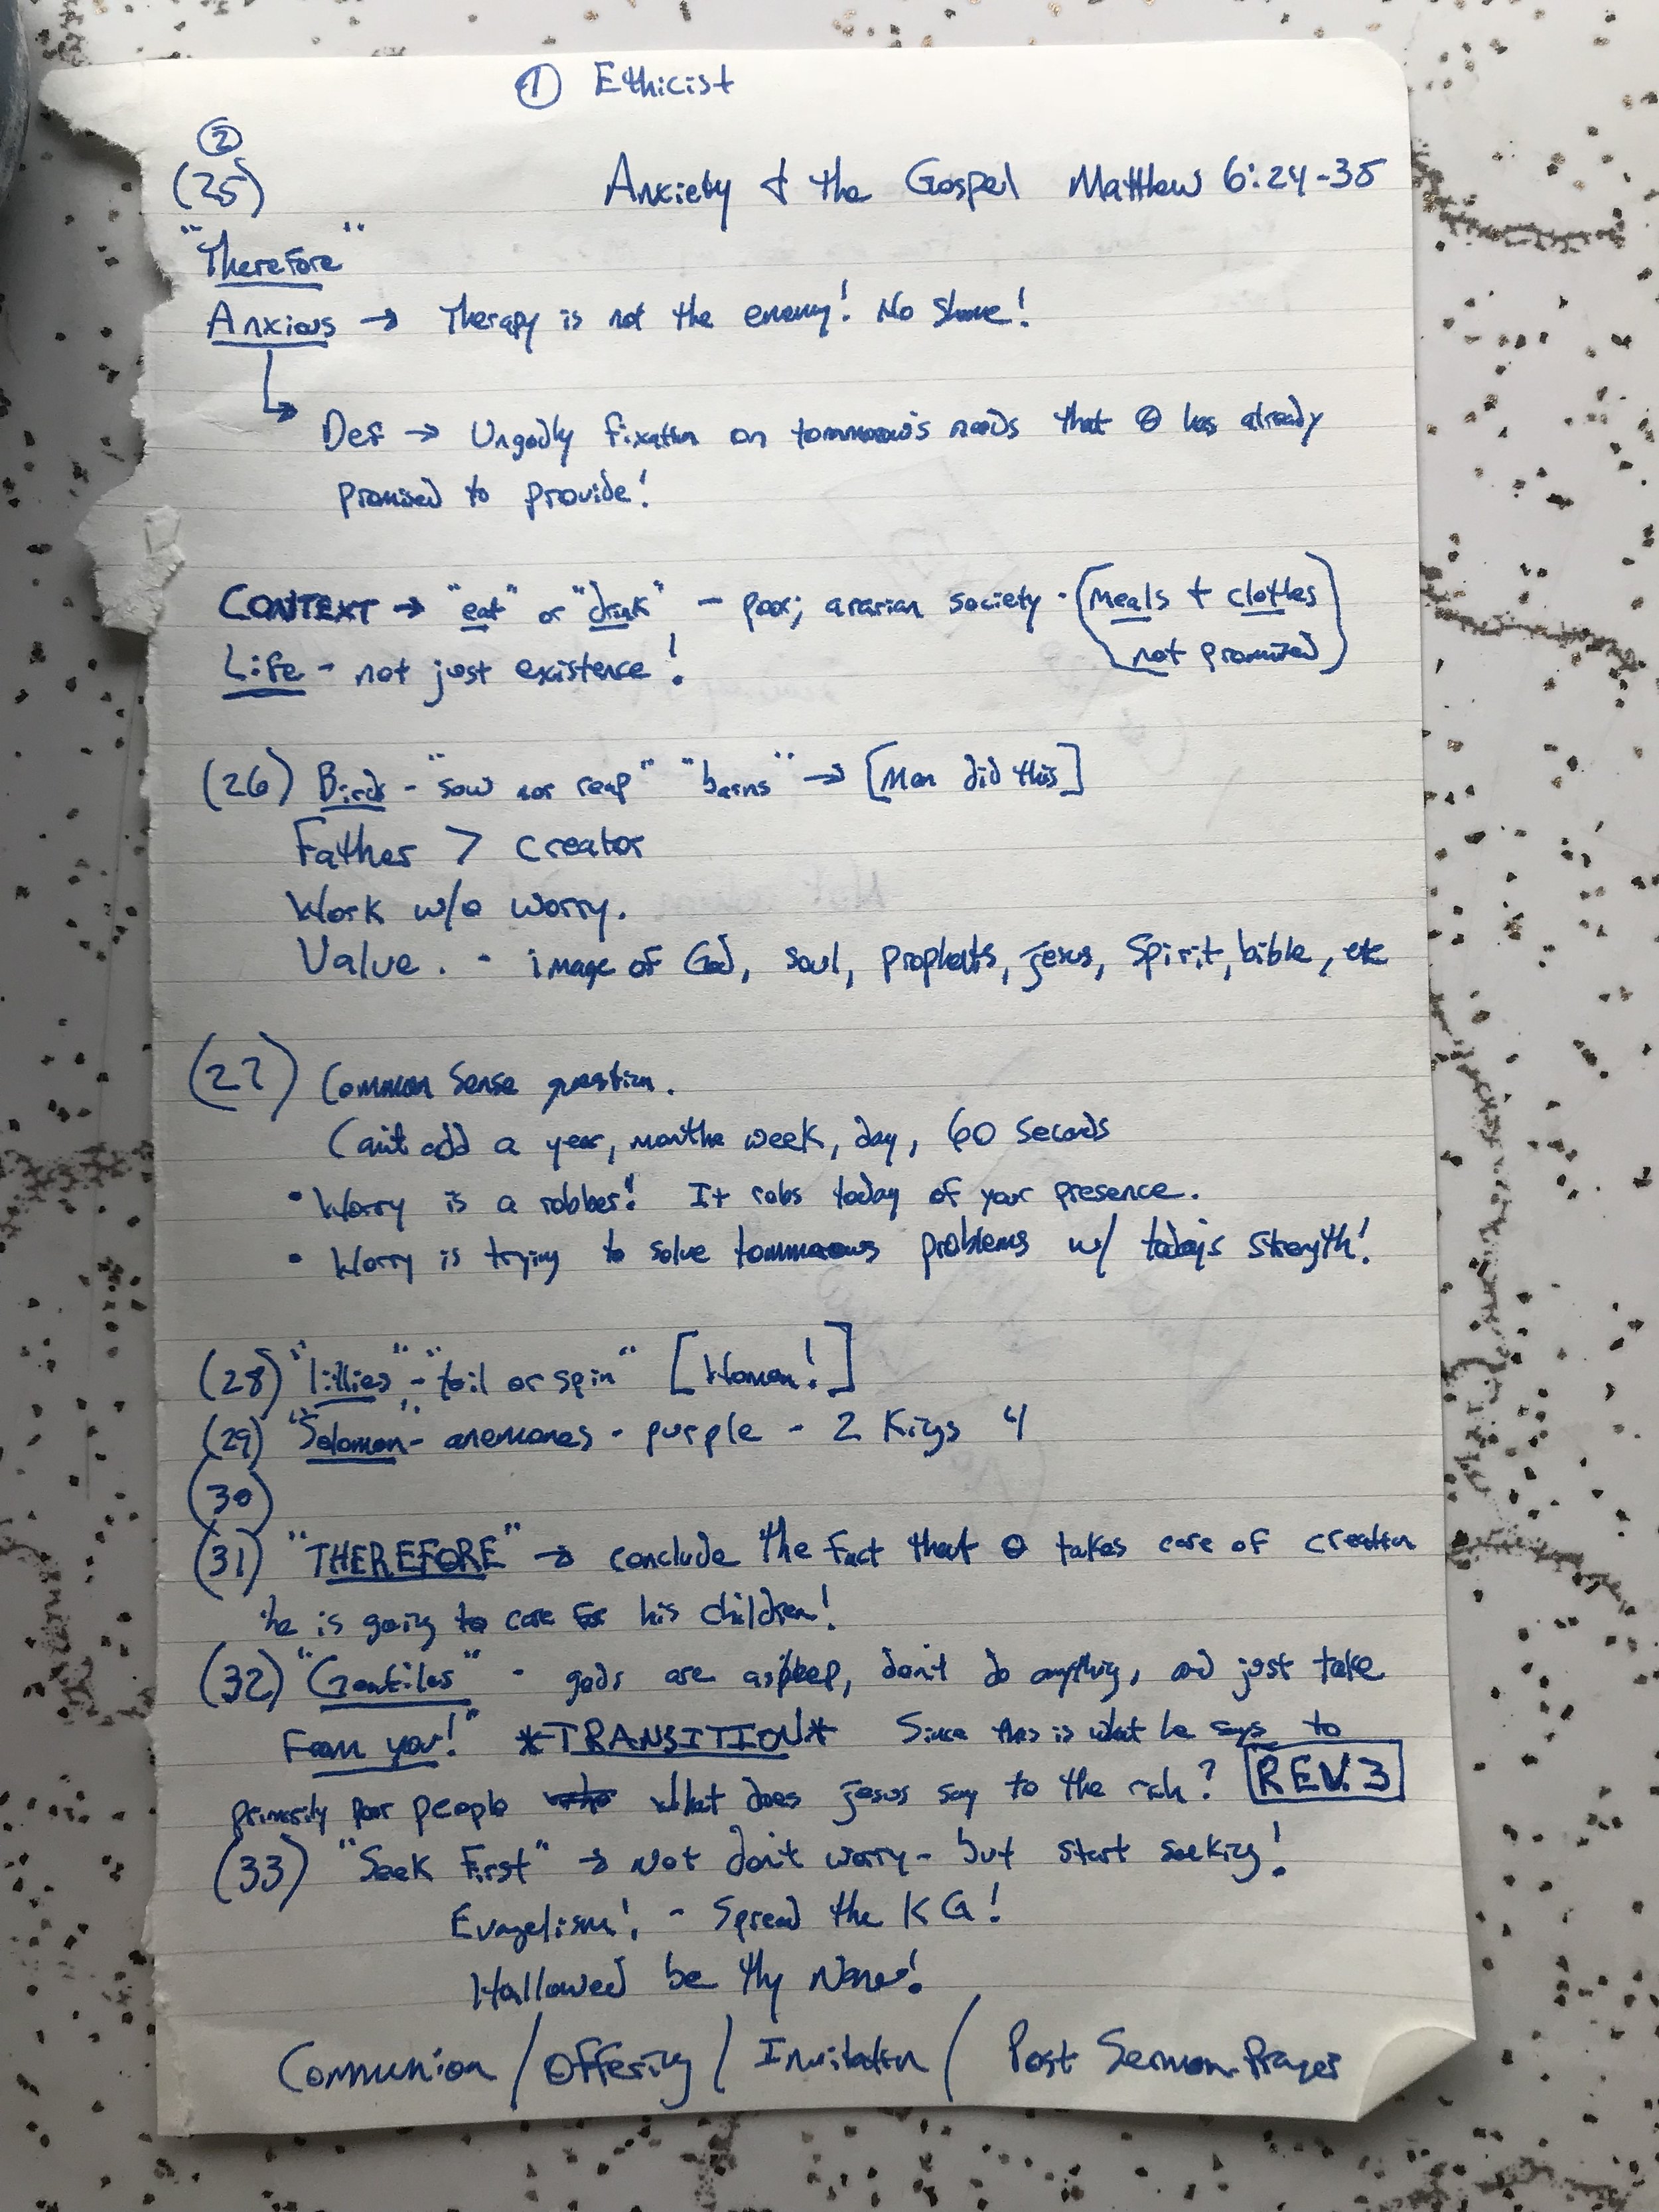 ① Ethicist
②
(25) Anxiety & the Gospel Matthew 6:24-35
"Therefore"
Anxious → Therapy is not the enemy! No Shame!
Def → Ungodly fixation on tommorow's needs that Θ has already
promised to provide!
CONTEXT → "eat" or "drink" - poor; ararian society · (meals + clothes
not promised)
Life - not just existence!
(26) Birds - "sow nor reap" "barns" → [Men did this]
Father > Creator
Work w/o worry.
Value. - image of God, soul, prophets, jesus, Spirit, bible, etc
(27) Common Sense question.
Can't add a year, months week, day, 60 Seconds
• Worry is a robber! It robs today of your presence.
• Worry is trying to solve tommorows problems w/ today's Strength!
(28) "lillies" - "toil or spin" [Women!]
(29) "Solomon" - anemones - purple - 2 Kigs 4
(30)
(31) "THEREFORE" → conclude the fact that Θ takes care of creation
he is going to care for his children!
(32) "Gentiles" - gods are asleep, don't do anything, and just take
From you!" *TRANSITION* Since this is what he says to
primarily poor people who What does jesus say to the rich? REV. 3
(33) "Seek First" → Not don't worry - but start seeking!
Evagelism! - Spread the KG!
Hallowed be thy Name!
Communion / Offering / Invitation / Post Sermon Prayer